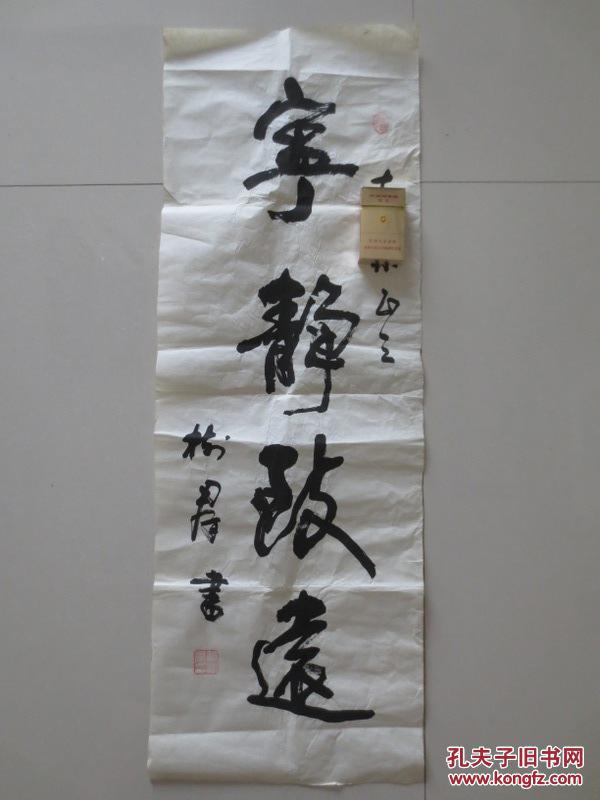 寧靜致遠
正之
樹群書
孔夫子旧书网
www.kongfz.com